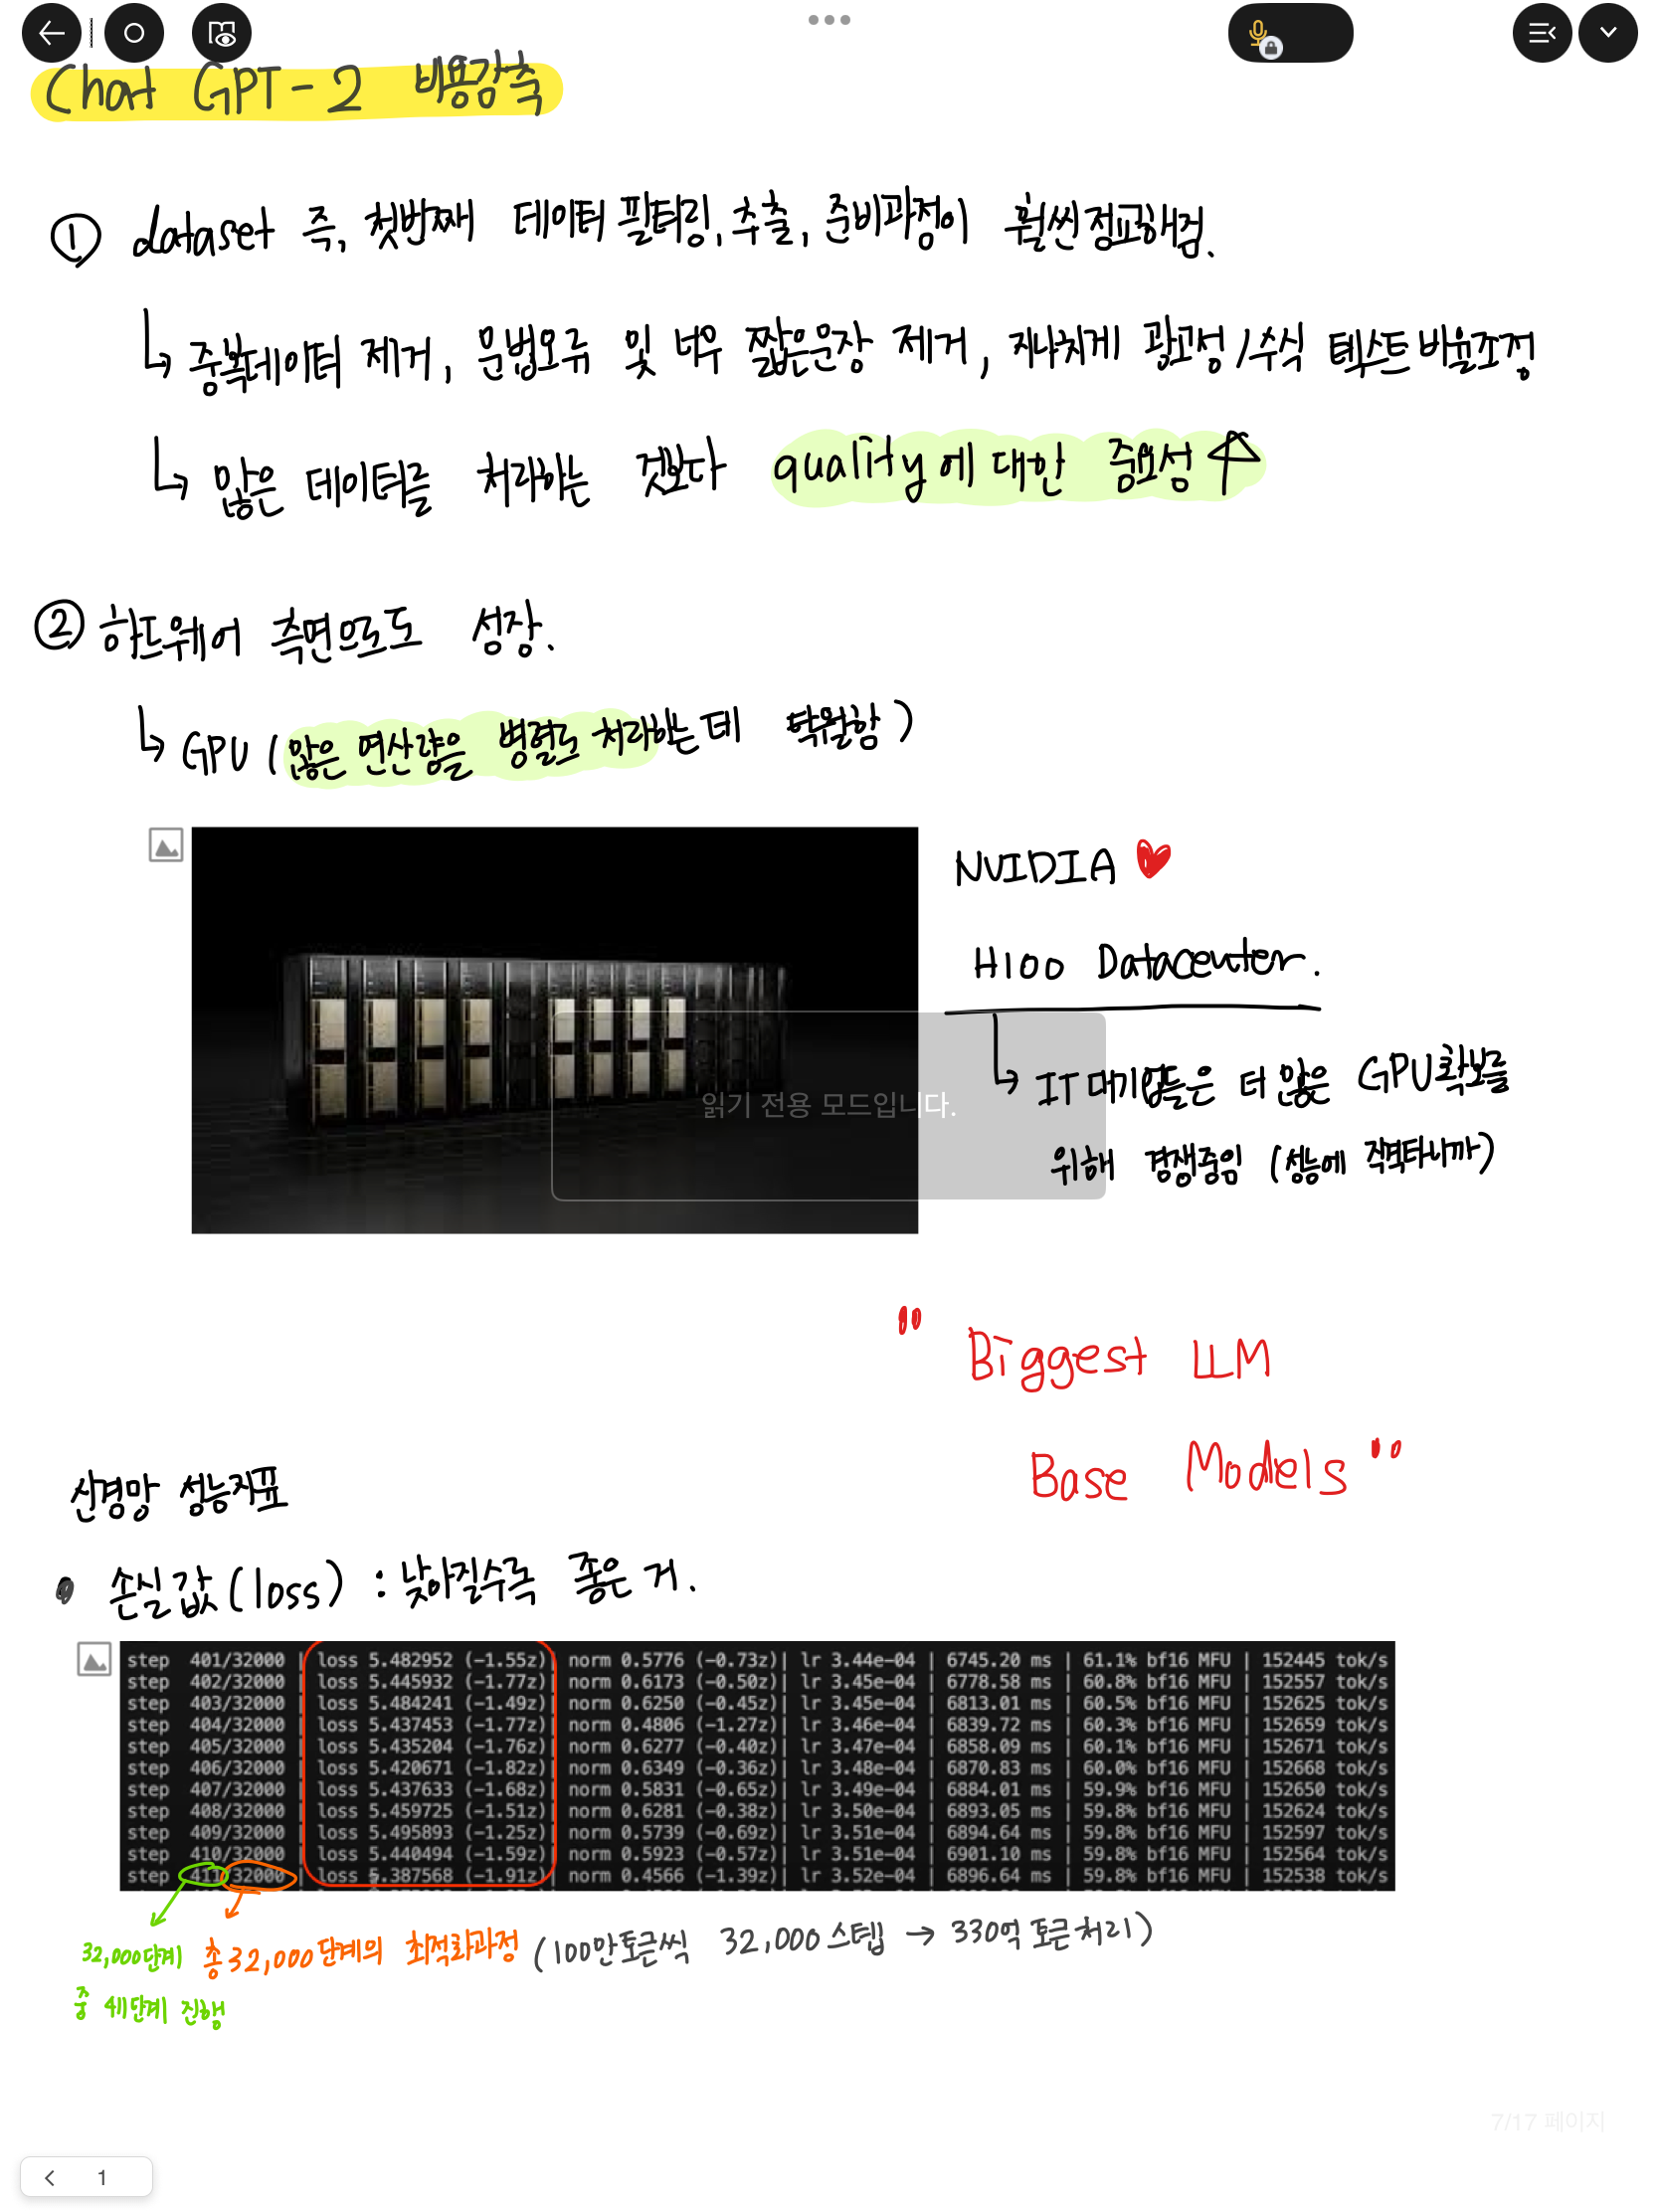 Chat GPT-2 비용감축
① dataset 즉, 첫번째 데이터 필터링, 추출, 준비과정이 훨씬 정교해짐.
↳ 중복데이터 제거, 문법오류 및 너무 짧은문장 제거, 지나치게 광고성/수식 텍스트 비율조정
↳ 많은 데이터를 처리하는 것보다 quality에 대한 중요성 ↑
② 하드웨어 측면으로도 성장.
↳ GPU (많은 연산량을 병렬로 처리하는데 탁월함)
NVIDIA ♥
H100 Datacenter.
↳ IT 대기업들은 더 많은 GPU확보를
읽기 전용 모드입니다.
위해 경쟁중임 (성능에 직격타니까)
" Biggest LLM
Base Models "
신경망 성능지표
• 손실값(loss) : 낮아질수록 좋은 거.
step 401/32000 | loss 5.482952 (-1.55z)| norm 0.5776 (-0.73z)| lr 3.44e-04 | 6745.20 ms | 61.1% bf16 MFU | 152445 tok/s
step 402/32000 | loss 5.445932 (-1.77z)| norm 0.6173 (-0.50z)| lr 3.45e-04 | 6778.58 ms | 60.8% bf16 MFU | 152557 tok/s
step 403/32000 | loss 5.484241 (-1.49z)| norm 0.6250 (-0.45z)| lr 3.45e-04 | 6813.01 ms | 60.5% bf16 MFU | 152625 tok/s
step 404/32000 | loss 5.437453 (-1.77z)| norm 0.4806 (-1.27z)| lr 3.46e-04 | 6839.72 ms | 60.3% bf16 MFU | 152659 tok/s
step 405/32000 | loss 5.435204 (-1.76z)| norm 0.6277 (-0.40z)| lr 3.47e-04 | 6858.09 ms | 60.1% bf16 MFU | 152671 tok/s
step 406/32000 | loss 5.420671 (-1.82z)| norm 0.6349 (-0.36z)| lr 3.48e-04 | 6870.83 ms | 60.0% bf16 MFU | 152668 tok/s
step 407/32000 | loss 5.437633 (-1.68z)| norm 0.5831 (-0.65z)| lr 3.49e-04 | 6884.01 ms | 59.9% bf16 MFU | 152650 tok/s
step 408/32000 | loss 5.459725 (-1.51z)| norm 0.6281 (-0.38z)| lr 3.50e-04 | 6893.05 ms | 59.8% bf16 MFU | 152624 tok/s
step 409/32000 | loss 5.495893 (-1.25z)| norm 0.5739 (-0.69z)| lr 3.51e-04 | 6894.64 ms | 59.8% bf16 MFU | 152597 tok/s
step 410/32000 | loss 5.440494 (-1.59z)| norm 0.5923 (-0.57z)| lr 3.51e-04 | 6901.10 ms | 59.8% bf16 MFU | 152564 tok/s
step 411/32000 | loss 5.387568 (-1.91z)| norm 0.4566 (-1.39z)| lr 3.52e-04 | 6896.64 ms | 59.8% bf16 MFU | 152538 tok/s
32,000단계 총 32,000단계의 최적화과정 (100만토큰씩 32,000 스텝 → 330억 토큰처리)
중 411단계 진행
7/17 페이지
1